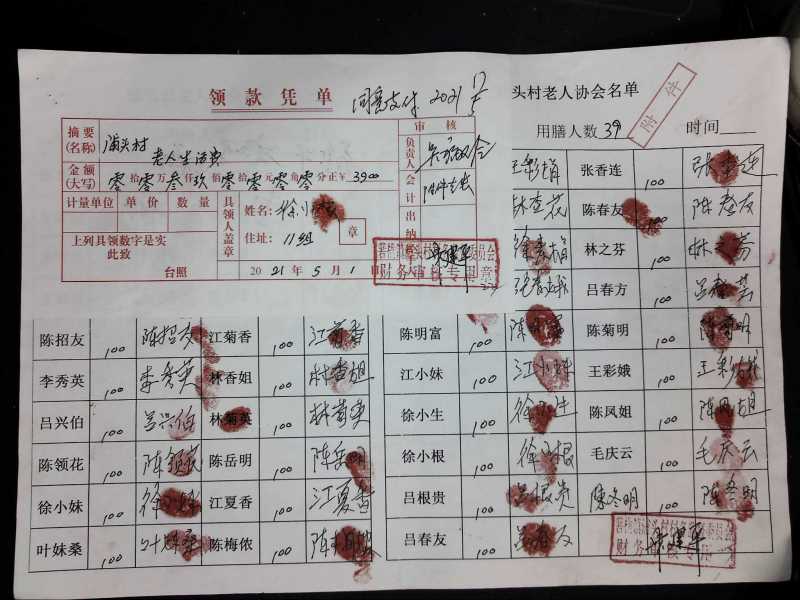 领款凭单
同意支付 2021
审核
摘要(名称) 浦头村
老人生活费
金额(大写) 零拾零万叁仟玖佰零拾零元零角零分 正¥ 3900
计量单位 单价 数量
具领人盖章
姓名:
章
住址: 11组
上列具领数字是实
此致
台照
2021年5月1
负责人
会计
出纳
财务审核专用章
头村老人协会名单
附件
用膳人数 39 时间
张香连 100
陈春友 100 陈春友
林之芬 100 林之芬
吕春方 100
陈招友 100 陈招友 江菊香 100 江菊香 陈明富 100 陈明富 陈菊明 100 陈菊明
李秀英 100 李秀英 林香姐 100 林香姐 江小妹 100 江小妹 王彩娥 100 王彩娥
吕兴伯 100 吕兴伯 林菊英 100 林菊英 徐小生 100 徐小生 陈凤姐 100 陈凤姐
陈领花 100 陈领花 陈岳明 100 陈岳明 徐小根 100 徐小根 毛庆云 100 毛庆云
徐小妹 100 徐小妹 江夏香 100 江夏香 吕根贵 100 吕根贵 陈冬明 100 陈冬明
叶妹桑 100 叶妹桑 陈梅侬 100 吕春友 100 吕春友